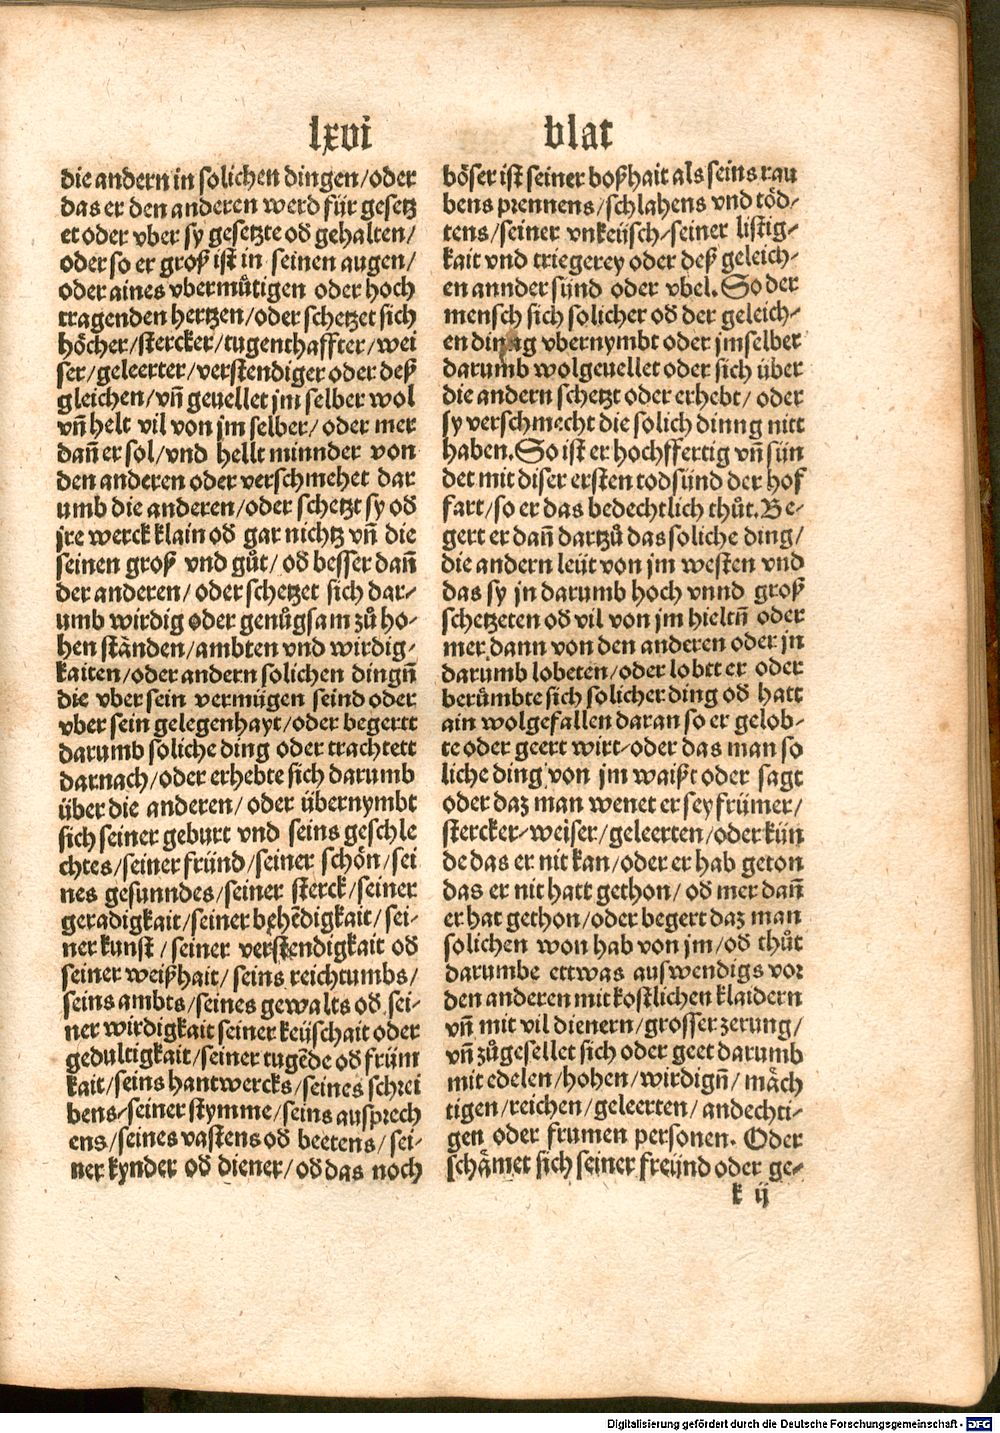 lxvi blat
die andern in solichen dingen/oder
das er den anderen werd für gesetz
et oder vber sy gesetzte od gehalten/
oder so er groß ist in seinen augen/
oder aines vbermůtigen oder hoch
tragenden hertzen/oder schetzet sich
höcher/stercker/tugenthaffter/wei
ser/geleerter/verstendiger oder deß
gleichen/vñ geuellet jm selber wol
vñ helt vil von jm selber/oder mer
dañ er sol/vnd hellt minnder von
den anderen oder verschmehet dar
umb die anderen/oder schetzt sy od
jre werck klain od gar nichtz vñ die
seinen groß vnd gůt/od besser dañ
der anderen/oder schetzet sich dar-
umb wirdig oder genůgsam zů ho-
hen ständen/ambten vnd wirdig-
kaiten/oder andern solichen dingñ
die vber sein vermügen seind oder
vber sein gelegenhayt/oder begertt
darumb soliche ding oder trachtett
darnach/oder erhebte sich darumb
über die anderen/oder übernymbt
sich seiner geburt vnd seins geschle
chtes/seiner fründ/seiner schön/sei
nes gesunndes/seiner sterck/seiner
geradigkait/seiner behēdigkait/sei-
ner kunst/seiner verstendigkait od
seiner weißhait/seins reichtumbs/
seins ambts/seines gewalts od sei-
ner wirdigkait seiner keüschait oder
gedultigkait/seiner tugēde od früm
kait/seins hantwercks/seines schrei
bens/seiner stymme/seins ausprech
ens/seines vastens od beetens/sei-
ner kynder od diener/od das noch
böser ist seiner boßhait als seins rau
bens prennens/schlahens vnd töd-
tens/seiner vnkeüsch/seiner listig-
kait vnd triegerey oder deß geleich-
en annder sünd oder vbel. So der
mensch sich solicher od der geleich-
en dinng vbernymbt oder jmselber
darumb wolgeuellet oder sich über
die andern schetzt oder erhebt/oder
sy verschmecht die solich dinng nitt
haben. So ist er hochffertig vñ sün
det mit diser ersten todsünd der hof
fart/so er das bedechtlich thůt. Be-
gert er dañ dartzů das soliche ding/
die andern leüt von jm westen vnd
das sy jn darumb hoch vnnd groß
schetzeten od vil von jm hieltñ oder
mer dann von den anderen oder jn
darumb lobeten/oder lobtt er oder
berůmbte sich solicher ding od hatt
ain wolgefallen daran so er gelob-
te oder geert wirt/oder das man so
liche ding von jm waißt oder sagt
oder daz man wenet er sey frümer/
stercker/weiser/geleerten/oder kün
de das er nit kan/oder er hab geton
das er nit hatt gethon/od mer dañ
er hat gethon/oder begert daz man
solichen won hab von jm/od thůt
darumbe ettwas auswendigs vor
den anderen mit kostlichen klaidern
vñ mit vil dienern/grosser zerung/
vñ zůgesellet sich oder geet darumb
mit edelen/hohen/wirdigñ/mäch
tigen/reichen/geleerten/andechti-
gen oder frumen personen. Oder
schämet sich seiner freünd oder ge-
k ij
Digitalisierung gefördert durch die Deutsche Forschungsgemeinschaft - DFG